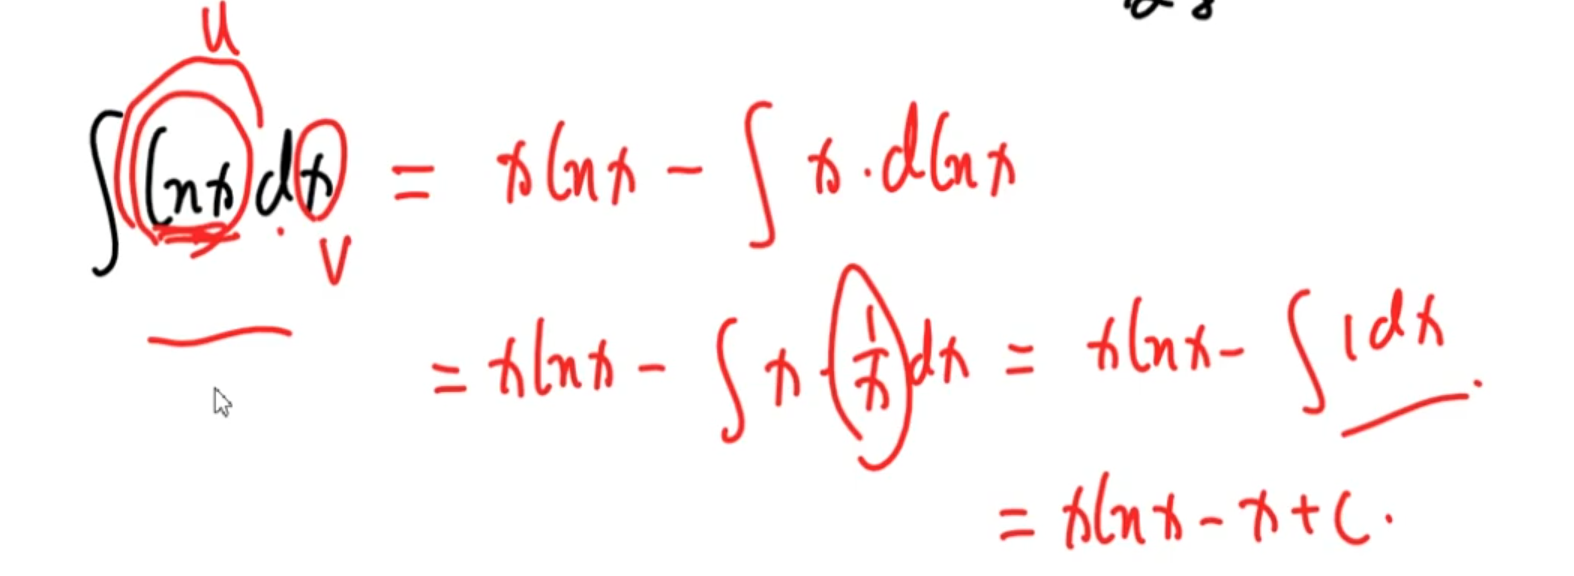 u
∫ ln x dx = x ln x - ∫ x · d ln x
v
= x ln x - ∫ x · 1/x dx = x ln x - ∫ 1 dx.
= x ln x - x + C.